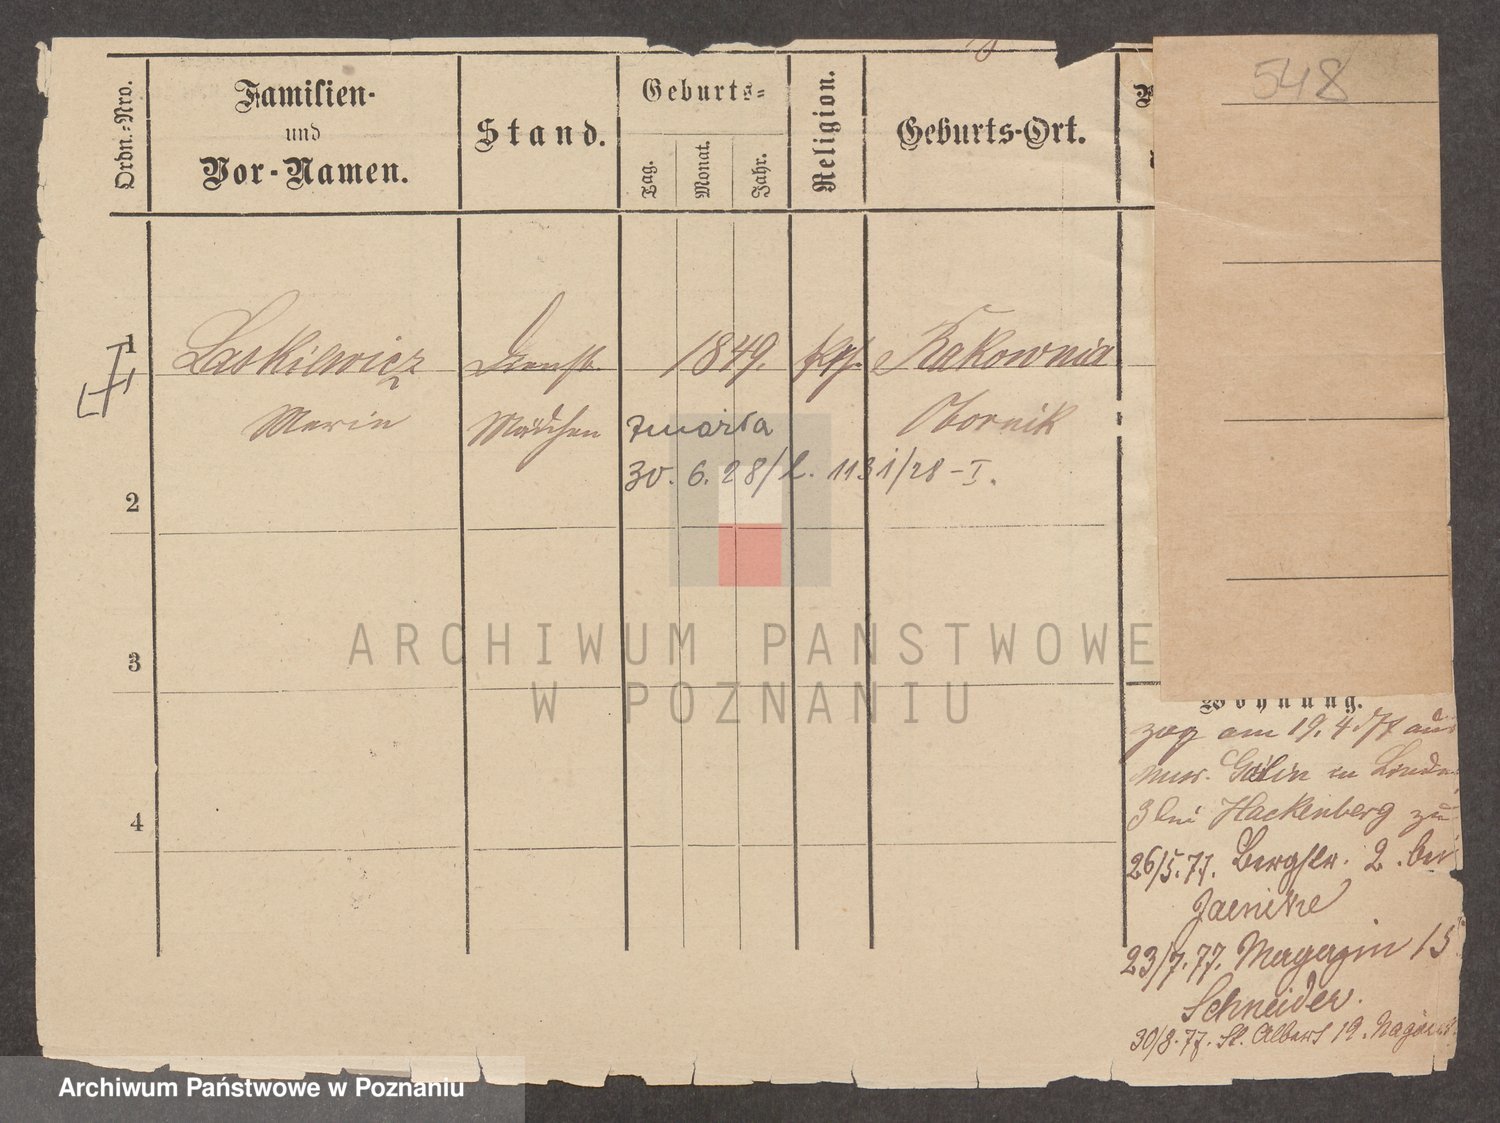 548
Ordn.-Nro.
Familien-
und
Vor-Namen.
Stand.
Geburts-
Tag.
Monat.
Jahr.
Religion.
Geburts-Ort.
1
Laskiewicz
Dienst
1849.
kth.
Rakownia
Marie
Mädchen
Obornik
zmarła
30. 6. 28/L. 1131/28-I.
2
3
4
Wohnung.
zog am 19. 4. 77 aus
Mur. Goslin in Linden
3 bei Hackenberg zu
26/5. 77. Bergstr. 2. bei
Jaenike
23/7. 77. Magazin 15
Schneider.
30/8. 77. St. Albert 19.
ARCHIWUM PAŃSTWOWE
W POZNANIU
Archiwum Państwowe w Poznaniu